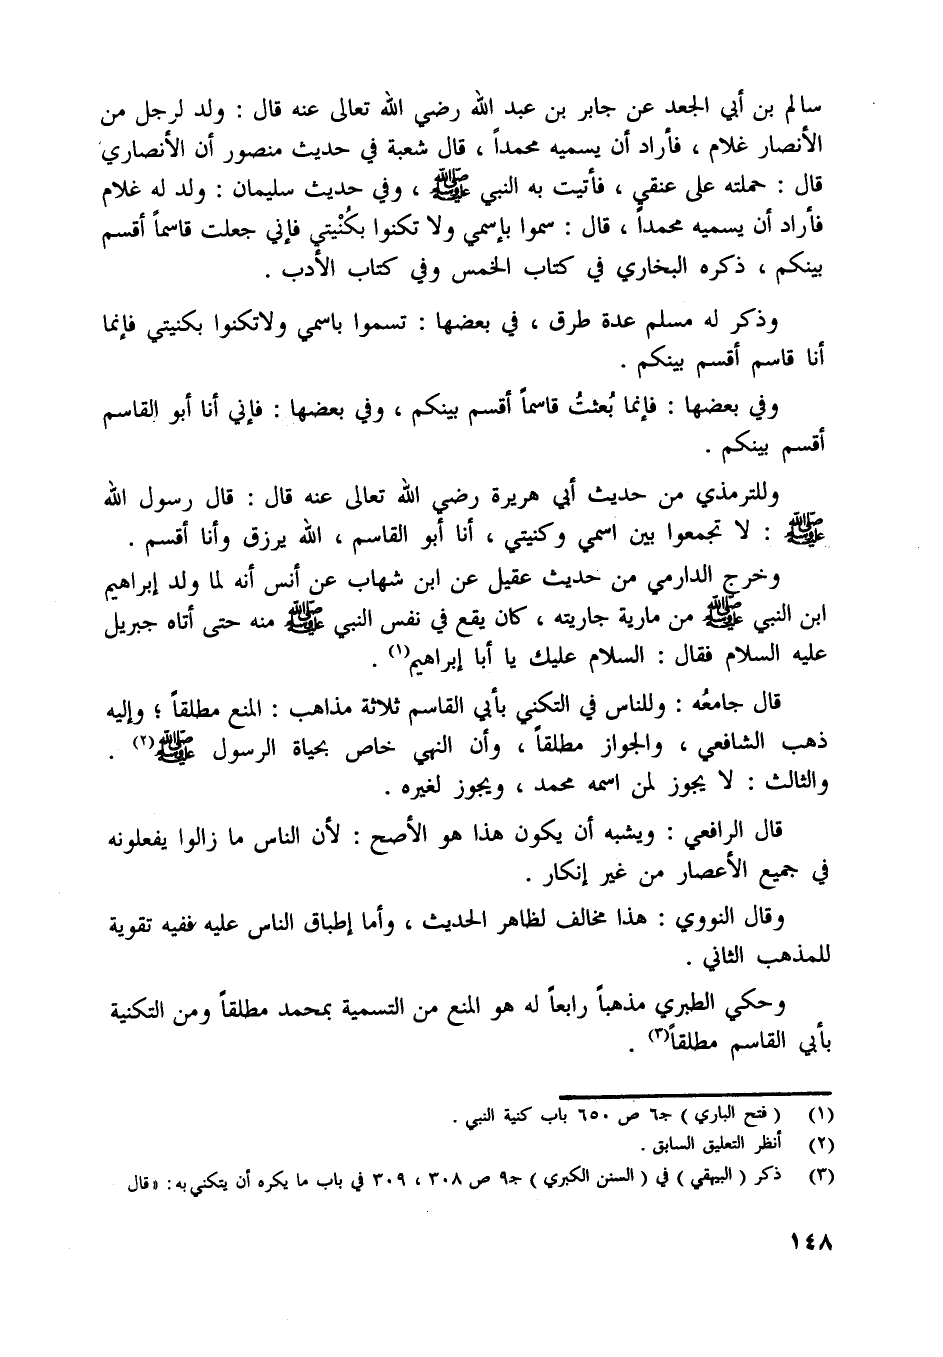 سالم بن أبي الجعد عن جابر بن عبد الله رضي الله تعالى عنه قال : ولد لرجل من
الأنصار غلام ، فأراد أن يسميه محمداً ، قال شعبة في حديث منصور أن الأنصاري
قال : حملته على عنقي ، فأتيت به النبي ﷺ ، وفي حديث سليمان : ولد له غلام
فأراد أن يسميه محمداً ، قال : سموا بإسمي ولا تكنوا بكُنْيتي فإني جعلت قاسماً أقسم
بينكم ، ذكره البخاري في كتاب الخمس وفي كتاب الأدب .
وذكر له مسلم عدة طرق ، في بعضها : تسموا باسمي ولاتكنوا بكنيتي فإنما
أنا قاسم أقسم بينكم .
وفي بعضها : فإنما بُعثتُ قاسماً أقسم بينكم ، وفي بعضها : فإني أنا أبو القاسم
أقسم بينكم .
وللترمذي من حديث أبي هريرة رضي الله تعالى عنه قال : قال رسول الله
ﷺ : لا تجمعوا بين اسمي وكنيتي ، أنا أبو القاسم ، الله يرزق وأنا أقسم .
وخرج الدارمي من حديث عقيل عن ابن شهاب عن أنس أنه لما ولد إبراهيم
ابن النبي ﷺ من مارية جاريته ، كان يقع في نفس النبي ﷺ منه حتى أتاه جبريل
عليه السلام فقال : السلام عليك يا أبا إبراهيم(١) .
قال جامعُه : وللناس في التكني بأبي القاسم ثلاثة مذاهب : المنع مطلقاً ؛ وإليه
ذهب الشافعي ، والجواز مطلقاً ، وأن النهي خاص بحياة الرسول ﷺ(٢) .
والثالث : لا يجوز لمن اسمه محمد ، ويجوز لغيره .
قال الرافعي : ويشبه أن يكون هذا هو الأصح : لأن الناس ما زالوا يفعلونه
في جميع الأعصار من غير إنكار .
وقال النووي : هذا مخالف لظاهر الحديث ، وأما إطباق الناس عليه ففيه تقوية
للمذهب الثاني .
وحكي الطبري مذهباً رابعاً له هو المنع من التسمية بمحمد مطلقاً ومن التكنية
بأبي القاسم مطلقاً(٣) .
(١) ( فتح الباري ) جـ٦ ص ٦٥٠ باب كنية النبي .
(٢) أنظر التعليق السابق .
(٣) ذكر ( البيهقي ) في ( السنن الكبري ) جـ٩ ص ٣٠٨ ، ٣٠٩ في باب ما يكره أن يتكني به : « قال
١٤٨